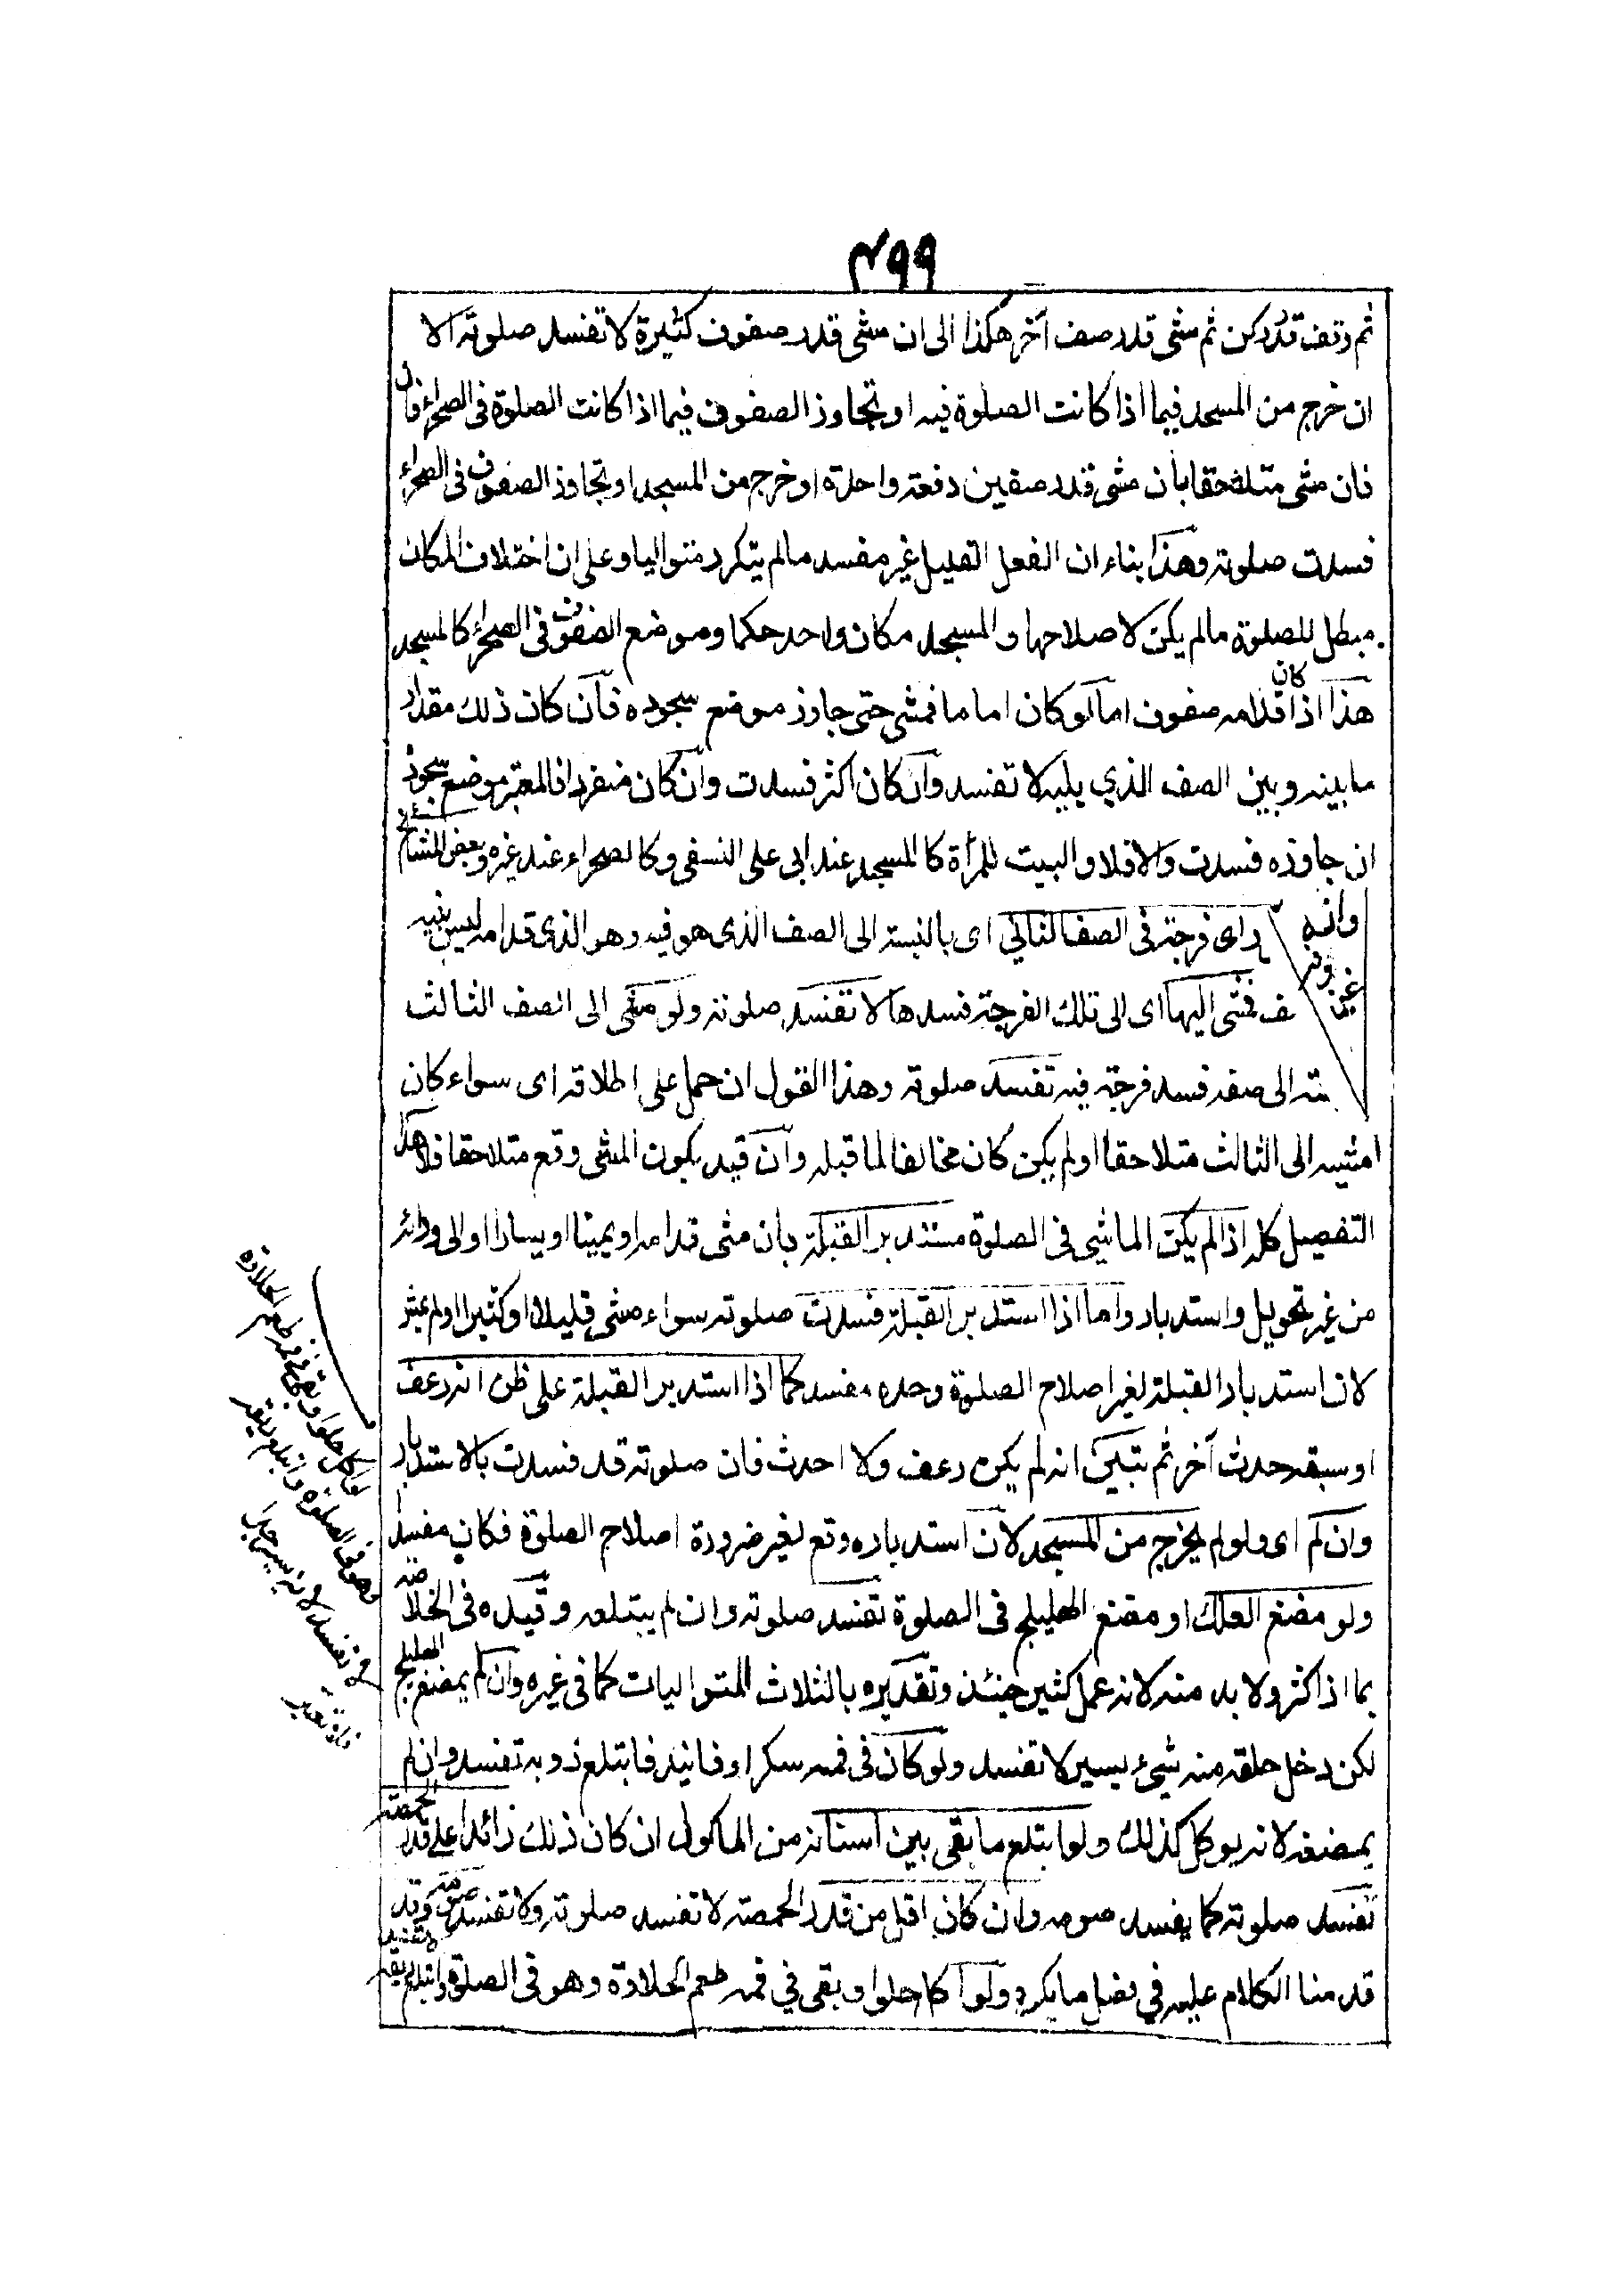 ٤٩٩
ثم وقف قدر ركن ثم مشى قدر صف آخر هكذا الى ان مشى قدر صفوف كثيرة لا تفسد صلوته الا
ان خرج من المسجد فيما اذا كانت الصلوة فيه او تجاوز الصفوف فيما اذا كانت الصلوة فى الصحراء فان
فان مشى متلاحقا بأن مشى قدر صفين دفعة واحدة او خرج من المسجد او تجاوز الصفوف فى الصحراء
فسدت صلوته وهذا بناء ان الفعل القليل غير مفسد مالم يتكرر متواليا وعلى ان اختلاف المكان
مبطل للصلوة مالم يكن لاصلاحها والمسجد مكان واحد حكما وموضع الصفوف فى الصحراء كالمسجد
هذا اذا كان قدامه صفوف اما لو كان اماما فمشى حتى جاوز موضع سجوده فان كان ذلك مقدار
ما بينه وبين الصف الذي يليه لا تفسد وان كان اكثر فسدت وان كان منفردا فالمعتبر موضع سجوده
ان جاوزه فسدت والا فلا والبيت للمرأة كالمسجد عند ابى على النسفى وكالصحراء عند غيره وبعض المشايخ
راى فرجة فى الصف الثاني اى بالنسبة الى الصف الذى هو فيه وهو الذى قدامه ليس بينه
ف فمشى اليها اى الى تلك الفرجة فسدها لا تفسد صلوته ولو مشى الى الصف الثالث
الى صفه فسد فرجة فيه تفسد صلوته وهذا القول ان حمل على اطلاقه اى سواء كان
مشيه الى الثالث متلاحقا او لم يكن كان مخالفا لما قبله وان قيد بكون المشى وقع متلاحقا فلا هذا
التفصيل كله اذا لم يكن الماشي فى الصلوة مستدبر القبلة بأن مشى قدامه او يمينا او يسارا او الى ورائه
من غير تحويل واستدبار واما اذا استدبر القبلة فسدت صلوته سواء مشى قليلا او كثيرا او لم يمش
لان استدبار القبلة لغير اصلاح الصلوة وحده مفسد كما اذا استدبر القبلة على ظن انه رعف
او سبقه حدث آخر ثم تبين انه لم يكن رعف ولا احدث فان صلوته قد فسدت بالاستدبار
وان لم اى ولو لم يخرج من المسجد لان استدباره وقع لغير ضرورة اصلاح الصلوة فكان مفسدا
ولو مضغ العلك او مضغ الهليلج فى الصلوة تفسد صلوته وان لم يبتلعه وقيده فى الخلاصة
بما اذا كثر ولا بد منه لانه عمل كثير حينئذ وتقديره بالثلاث المتواليات كما فى غيره وان لم يمضغ الهليلج
لكن دخل حلقه منه شيء يسير لا تفسد ولو كان فى فمه سكر او فانيذ فابتلع ذوبه تفسد وان لم
يمضغه لانه يوكل كذلك ولو ابتلع ما بقى بين اسنانه من الماكول ان كان ذلك زائدا على قدر الحمصة
تفسد صلوته كما يفسد صومه وان كان اقل من قدر الحمصة لا تفسد صلوته ولا تفسد صومه وقد
قدمنا الكلام عليه في فصل ما يكره ولو اكل حلوا وبقى في فمه طعم الحلاوة وهو فى الصلوة وابتلع ريقه لا تفسد
ولو اكل حلوا وبقى فى فمه طعم الحلاوة
وهو فى الصلوة وابتلع ريقه